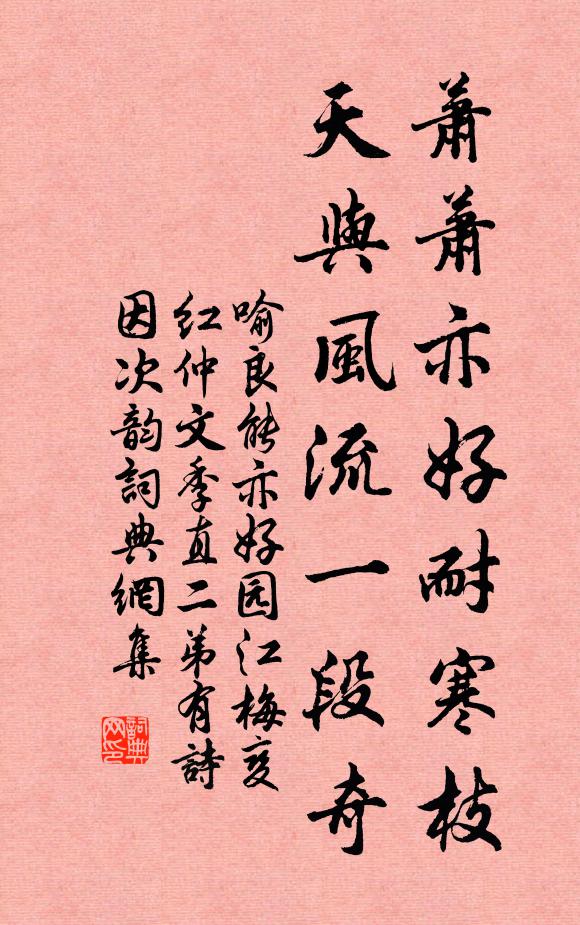 蕭蕭亦好耐寒枝
天與風流一段奇
喻良能亦好园江梅变
红仲文季直二弟有詩
因次韵詞典網集
詞典网印